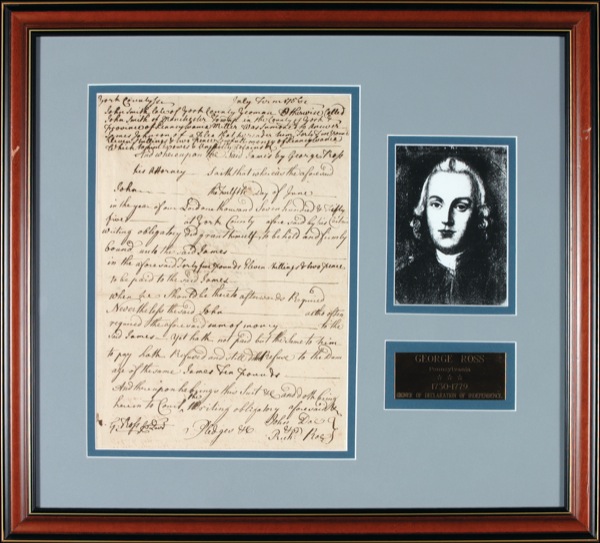 York County ss July Term 1756
John Smith late of York County Yeoman Otherwise Called
John Smith of Township in the County of York &
Province of Pennsylvania Miller was Summoned to Answer
James Johnson of a Plea that he render him forty five pounds
Eleven Shillings & two pence money of Pennsylvania
which to him he owes & unjustly detains &c
And whereupon the said James by George Ross
his Attorney Saith that whereas the aforesaid
John the twelfth Day of June
in the year of our Lord one thousand Seven hundred & fifty
five at York County aforesaid by his Certain
writing obligatory did grant himself to be held and firmly
bound unto the said James
in the aforesaid forty five pounds Eleven Shillings & two pence
to be paid to the said James
when he Should be thereto afterwards Required
Nevertheless the said John altho often
required the aforesaid sum of money to the
said James Yet hath not paid but the same to him
to pay hath Refused and still doth Refuse to the Dam
age of the same James Ten Pounds
And thereupon he brings this Suit &c and doth bring
herein to Court the writing obligatory aforesaid &c
G. Ross Pledges &c John Doe
Richd Roe
GEORGE ROSS
Pennsylvania
1730-1779
SIGNER OF DECLARATION OF INDEPENDENCE